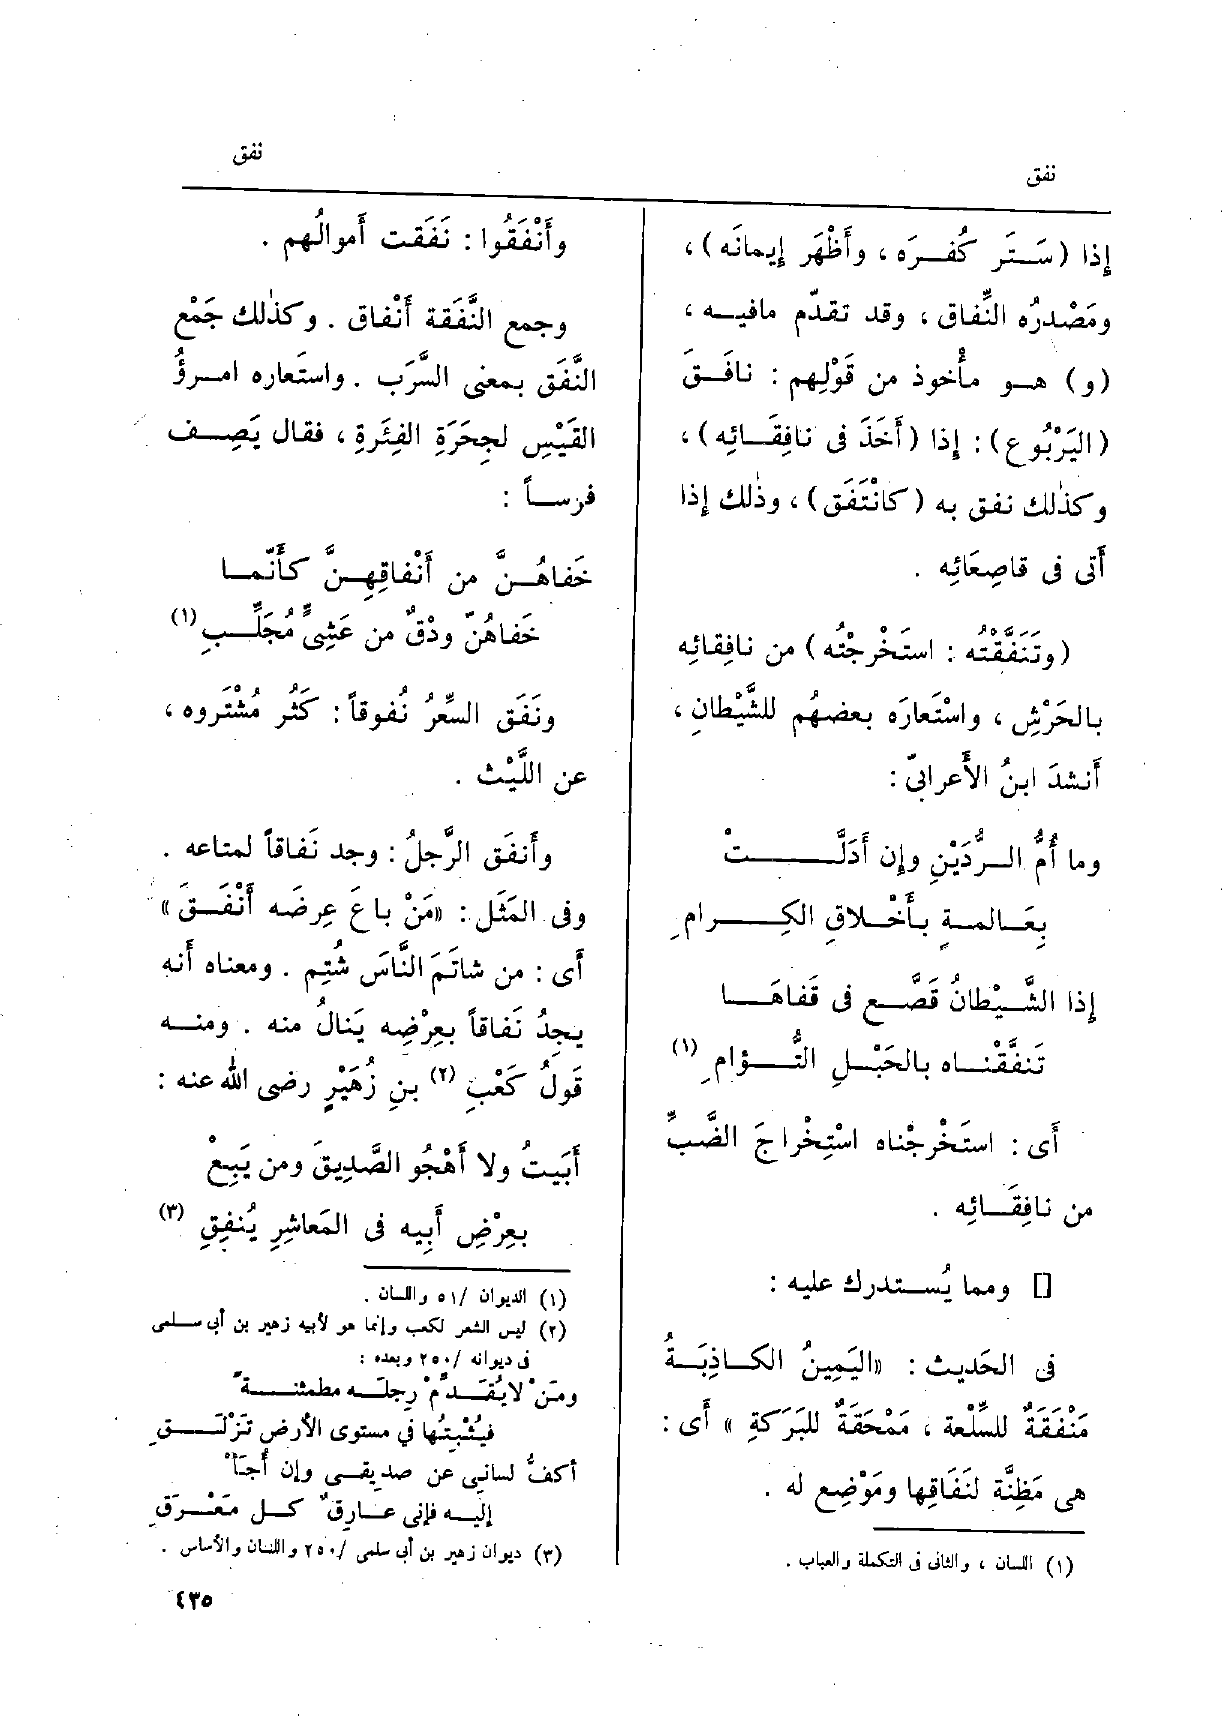 نفق
نفق
إذا (سَتَر كُفره ، وأَظْهَر إيمانَه) ،
ومَصْدرُه النِّفاق ، وقد تقدّم مافيه ،
(و) هو مأْخوذ من قَوْلِهم : نافَقَ
(اليَرْبُوع) : إذا (أَخَذَ فى نافِقَائِه) ،
وكذٰلك نفق به (كانْتَفَق) ، وذٰلك إذا
أَتى فى قاصِعَائِه .
(وتَنَفَّقْتُه : استَخْرجْتُه) من نافِقائِه
بالحَرْشِ ، واسْتَعارَه بعضهُم للشَّيْطانِ ،
أَنشدَ ابنُ الأَعرابىّ :
وما أُمُّ الرُّدَيْنِ وإن أَدَلَّتْ
بِعَالمةٍ بأَخْلاقِ الكِرامِ
إذا الشَّيْطانُ قَصَّع فى قَفاهَا
تَنفَّقْناه بالحَبْلِ التُّؤامِ (١)
أَى : استَخْرجْناه اسْتِخْراجَ الضَّبِّ
من نافِقَائِه .
[] ومما يُستدرك عليه :
فى الحَديث : «اليَمِينُ الكاذِبَةُ
مَنْفَقَةٌ للسِّلْعة ، مَمْحَقَةٌ للبَرَكَةِ » أَى :
هى مَظِنَّة لنَفَاقِها ومَوْضِع له .
(١) اللسان ، والثانى فى التكملة والعباب .
وأَنْفَقُوا : نَفَقت أَموالُهم .
وجمع النَّفَقة أَنْفاق . وكذٰلك جَمْع
النَّفَق بمعنى السَّرَب . واستَعاره امرؤُ
القَيْسِ لجِحَرَةِ الفِئَرةِ ، فقال يَصِف
فرساً :
خَفاهُنَّ من أَنْفاقِهِنَّ كأَنّما
خَفاهُنّ ودْقٌ من عَشِىٍّ مُجَلِّبِ (١)
ونَفَق السِّعرُ نُفوقاً : كَثُر مُشْتروه ،
عن اللَّيْث .
وأَنفَق الرَّجلُ : وجد نَفاقاً لمتاعه .
وفى المَثَل : «مَنْ باعَ عِرضَه أَنْفَقَ»
أَى : من شاتَمَ النَّاسَ شُتِم . ومعناه أَنه
يجِدُ نَفاقاً بعِرْضِه يَنالُ منه . ومنه
قَولُ كَعْبِ (٢) بنِ زُهَيْرٍ رضى الله عنه :
أَبَيتُ ولا أَهْجُو الصَّدِيقَ ومن يَبِعْ
بعِرْضِ أَبِيه فى المَعاشِرِ يُنفِقِ (٣)
(١) الديوان /٥١ واللسان .
(٢) ليس الشعر لكعب وإنما هو لأبيه زهير بن أبى سلمى
فى ديوانه /٢٥٠ وبعده :
ومَنْ لايُقَدِّمْ رِجلَه مطمئنةً
فيُثْبتُها في مستوى الأرض تَزْلَقِ
أكفُّ لسانى عن صديقى وإن أُجَأْ
إليه فإنى عارِقٌ كل مَعْرَقِ
(٣) ديوان زهير بن أبى سلمى /٢٥٠ واللسان والأساس .
٤٣٥